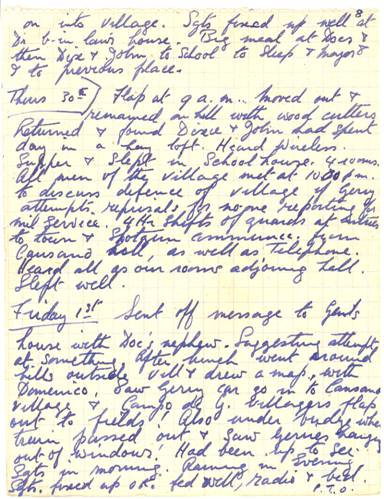 8
on into village. Sgts fixed up well at
Dr b-in laws house. Big meal at Docs &
then Dixie & John to School to sleep & major
& to previous place.
Thurs 30th) Flap at 9 a.m... moved out &
remained on hill with wood cutters
Returned & found Dixie & John had spent
day in a hay loft. Heard wireless.
Supper & slept in School house. 4 rooms.
All men of the village met at 10.00 pm.
to discuss defence of village if Gerry
attempts reprisals for no one reporting for
mil service. 4 Hr shifts of guards at entries
to town & Shotgun from
hill, as well as Telephone.
Heard all as our rooms adjoining hall.
Slept well.
Friday 1st Sent off message to Gents
house with Doc's nephew. Suggesting attempt
at something. After lunch went around
hills outside vill & drew a map, with
Domenico. Saw Gerry car go in to
village & Campo dog. Villagers flap
out to fields! Also under bridge when
train passed out & saw Gerries hanging
out of windows! Had been up to see
Sgts in morning. Raining in evening
Sgts. fixed up o.k. fed well, radio & bed.
P.T.O.